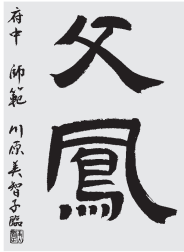 父鳳
府中 師範 川原美智子臨